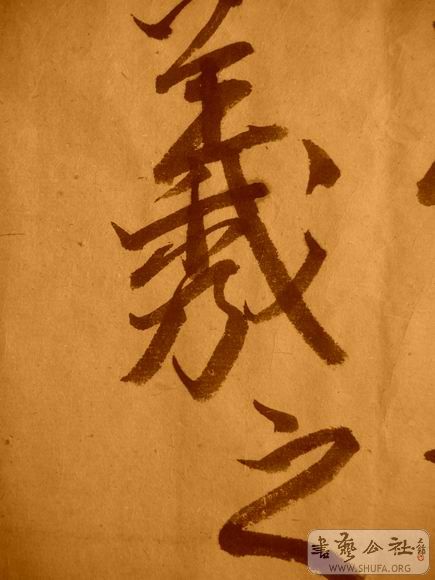 羲之
書藝公社
WWW.SHUFA.ORG